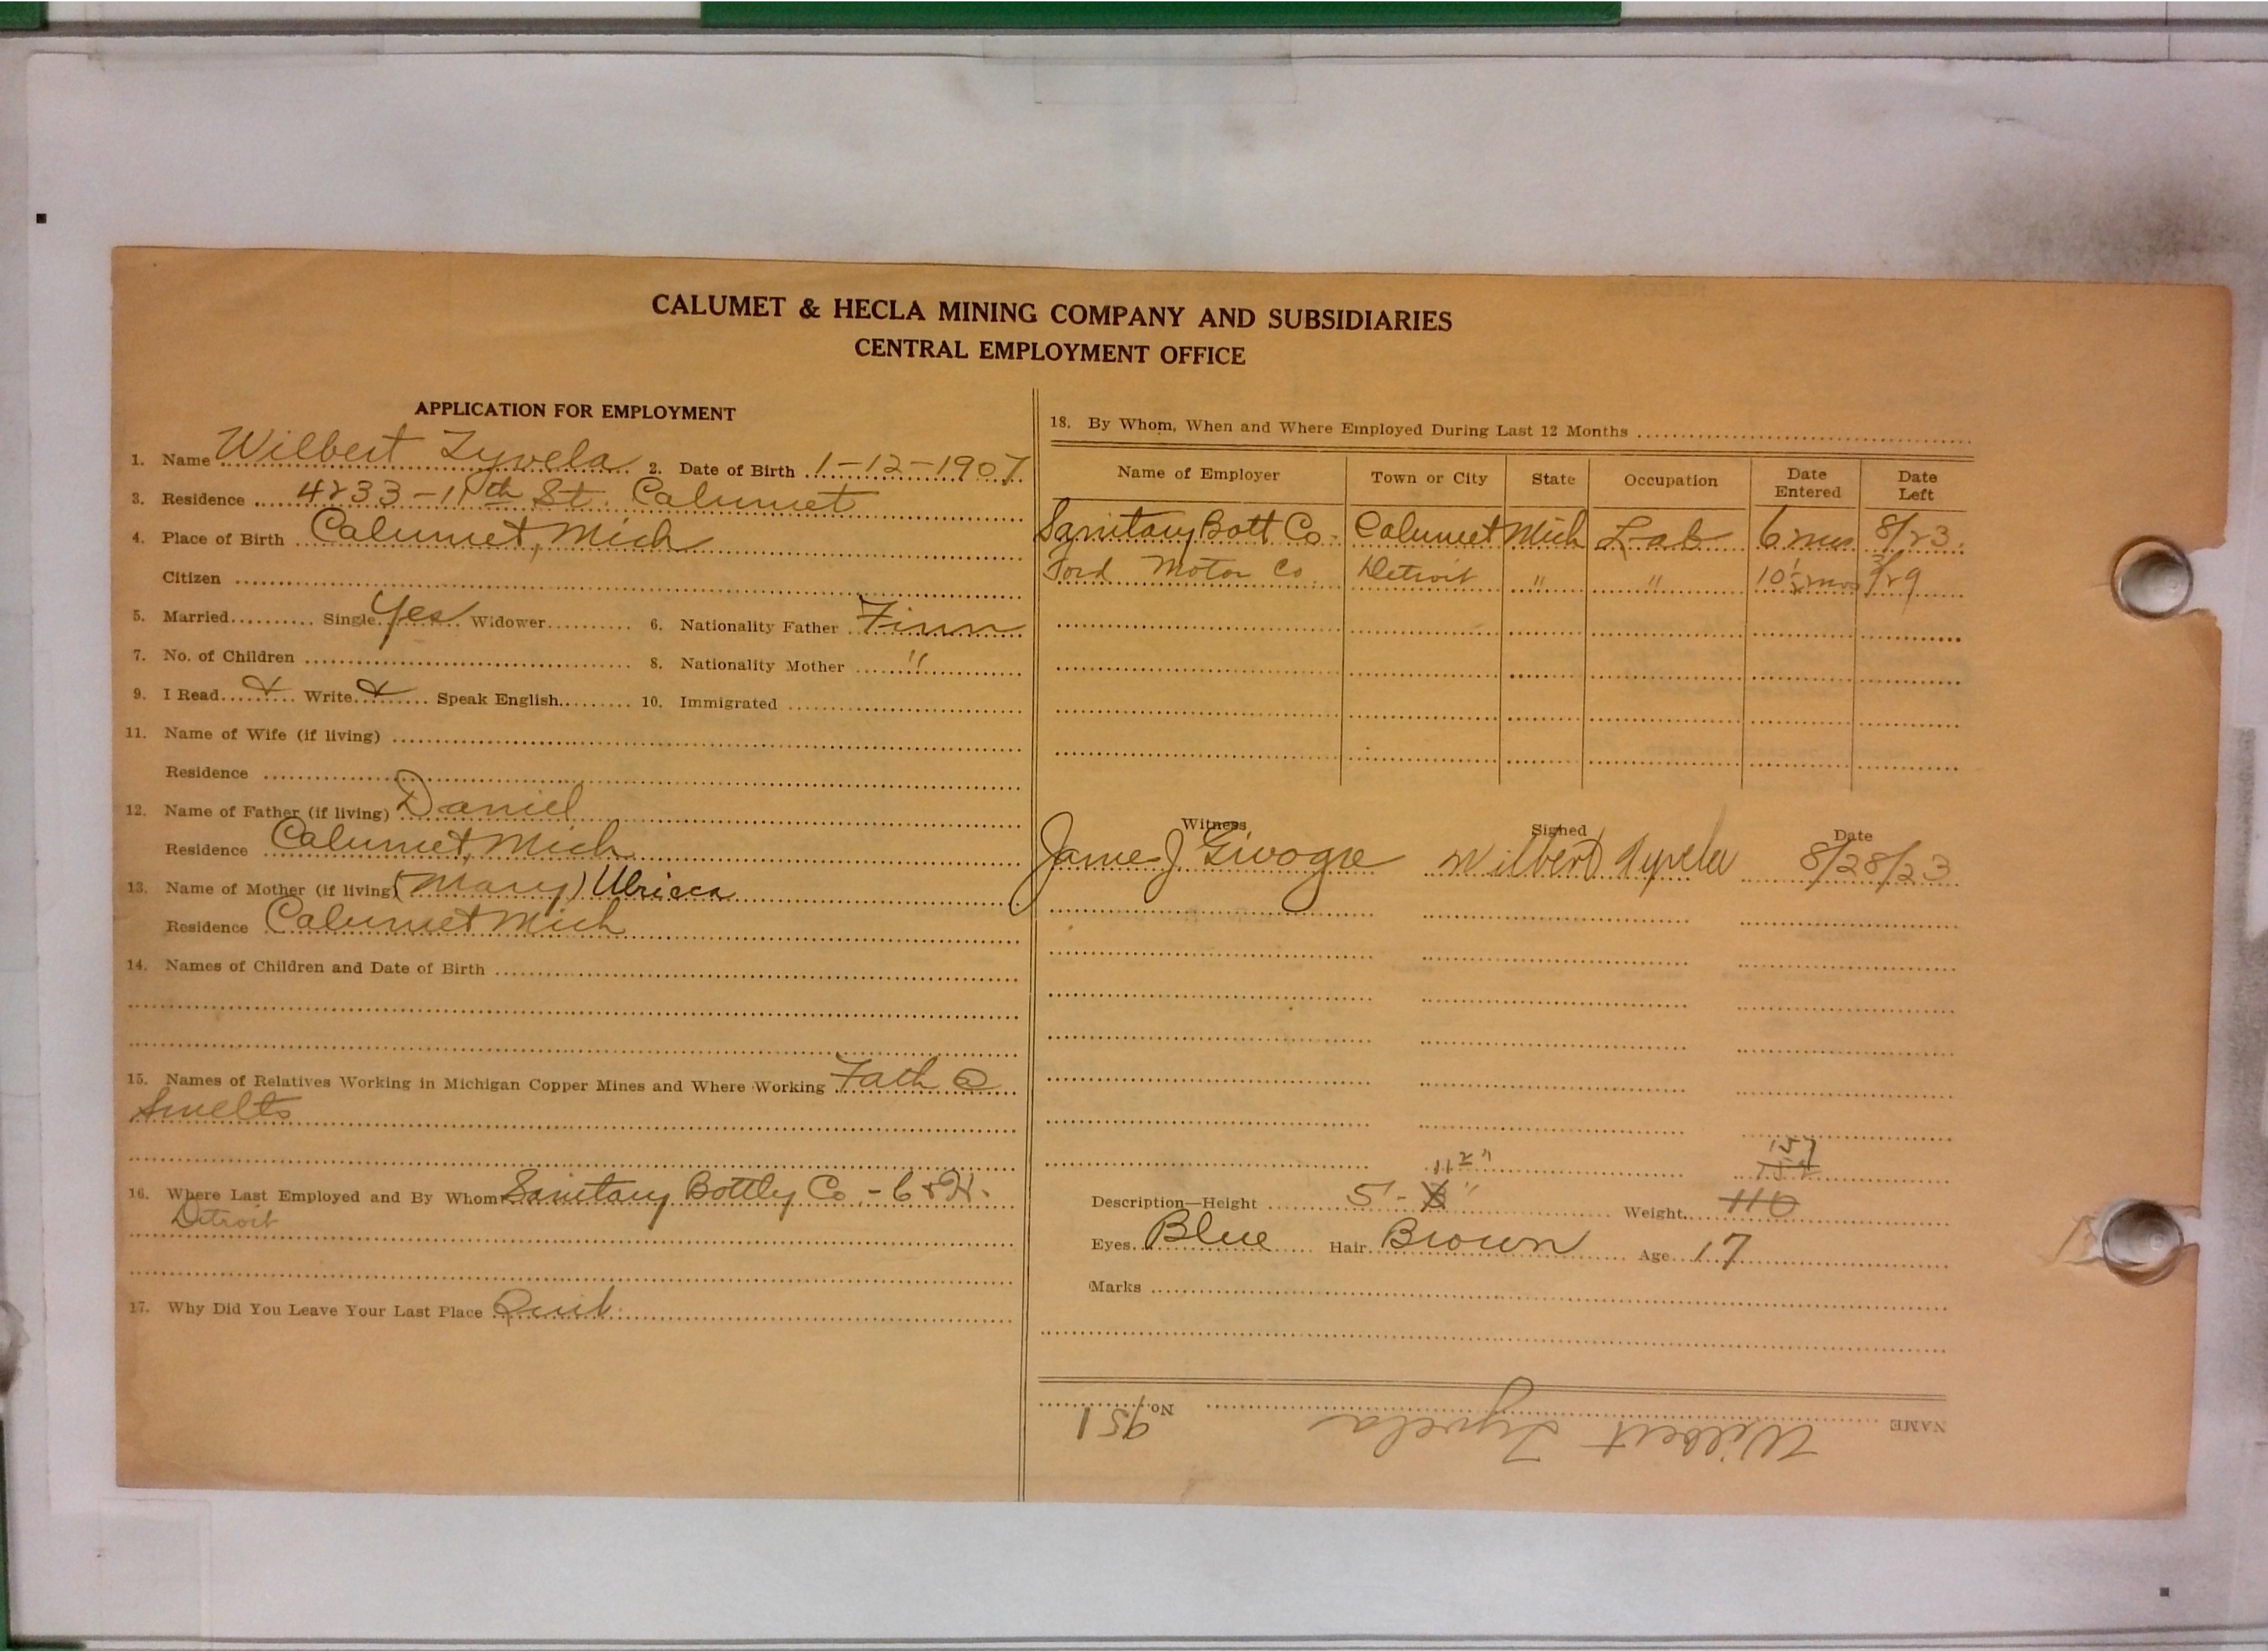 CALUMET & HECLA MINING COMPANY AND SUBSIDIARIES
CENTRAL EMPLOYMENT OFFICE
APPLICATION FOR EMPLOYMENT
1. Name Wilbert Zyvela 2. Date of Birth 1-12-1907
3. Residence 4233-11th St. Calumet
4. Place of Birth Calumet, Mich
Citizen
5. Married Single Yes Widower 6. Nationality Father Finn
7. No. of Children 8. Nationality Mother "
9. I Read x Write x Speak English 10. Immigrated
11. Name of Wife (if living)
Residence
12. Name of Father (if living) Daniel
Residence Calumet, Mich
13. Name of Mother (if living) (Mary) Ulricca
Residence Calumet Mich
14. Names of Children and Date of Birth
15. Names of Relatives Working in Michigan Copper Mines and Where Working Fath @
Smelts
16. Where Last Employed and By Whom Sanitary Bottlg Co - C & H.
Detroit
17. Why Did You Leave Your Last Place Quit.
18. By Whom, When and Where Employed During Last 12 Months
Name of Employer Town or City State Occupation Date Entered Date Left
Sanitary Bott Co. Calumet Mich Lab 6 mos 8/23.
Ford Motor Co. Detroit " " 10½ mos 3/29
Witness Signed Date
James J. Wilbert 8/28/23
11 2" 157
Description—Height 5'- 8" Weight 110
Eyes Blue Hair Brown Age 17
Marks
NAME Wilbert Zyvela No. 951